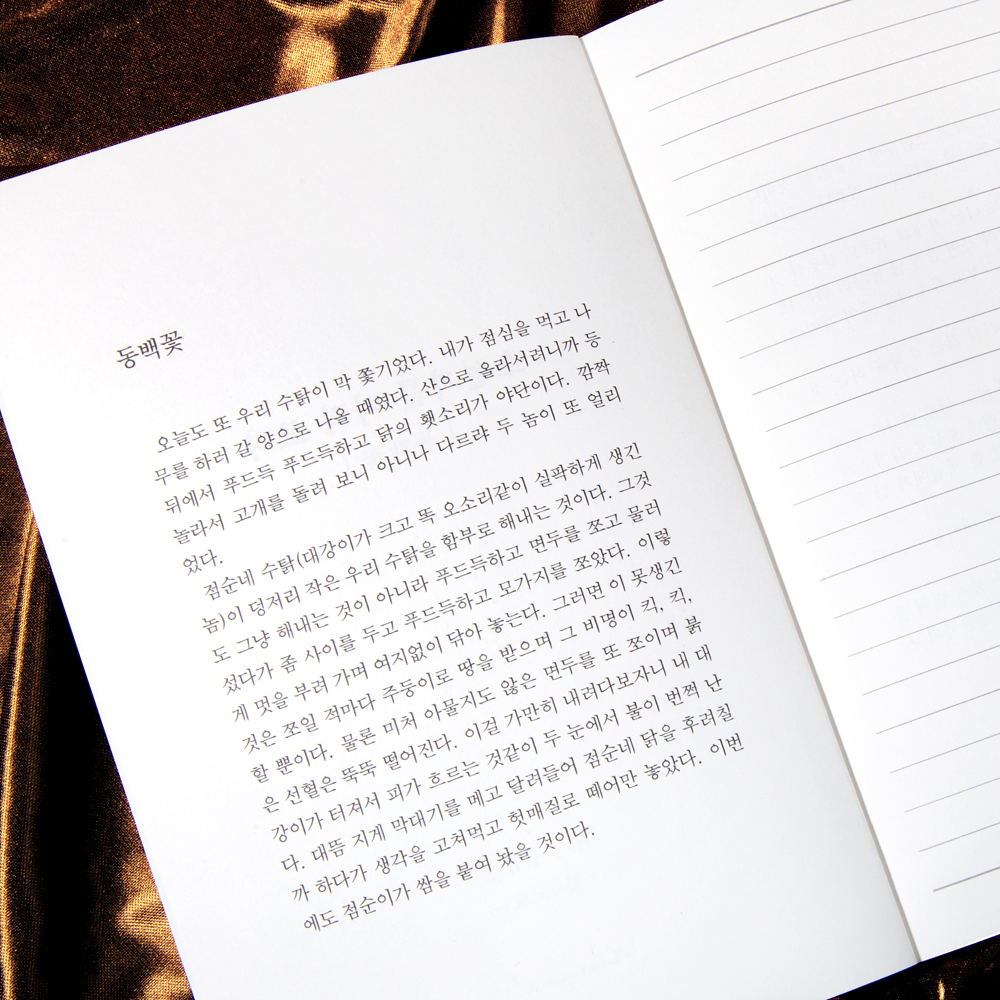 동백꽃
오늘도 또 우리 수탉이 막 쫓기었다. 내가 점심을 먹고 나
무를 하러 갈 양으로 나올 때였다. 산으로 올라서려니까 등
뒤에서 푸드득 푸드득하고 닭의 횃소리가 야단이다. 깜짝
놀라서 고개를 돌려 보니 아니나 다르랴 두 놈이 또 얼리
었다.
점순네 수탉(대강이가 크고 똑 오소리같이 실팍하게 생긴
놈)이 덩저리 작은 우리 수탉을 함부로 해내는 것이다. 그것
도 그냥 해내는 것이 아니라 푸드득하고 면두를 쪼고 물러
섰다가 좀 사이를 두고 푸드득하고 모가지를 쪼았다. 이렇
게 멋을 부려 가며 여지없이 닦아 놓는다. 그러면 이 못생긴
것은 쪼일 적마다 주둥이로 땅을 받으며 그 비명이 킥, 킥,
할 뿐이다. 물론 미처 아물지도 않은 면두를 또 쪼이며 붉
은 선혈은 뚝뚝 떨어진다. 이걸 가만히 내려다보자니 내 대
강이가 터져서 피가 흐르는 것같이 두 눈에서 불이 번쩍 난
다. 대뜸 지게 막대기를 메고 달려들어 점순네 닭을 후려칠
까 하다가 생각을 고쳐먹고 헛매질로 떼어만 놓았다. 이번
에도 점순이가 쌈을 붙여 놨을 것이다.